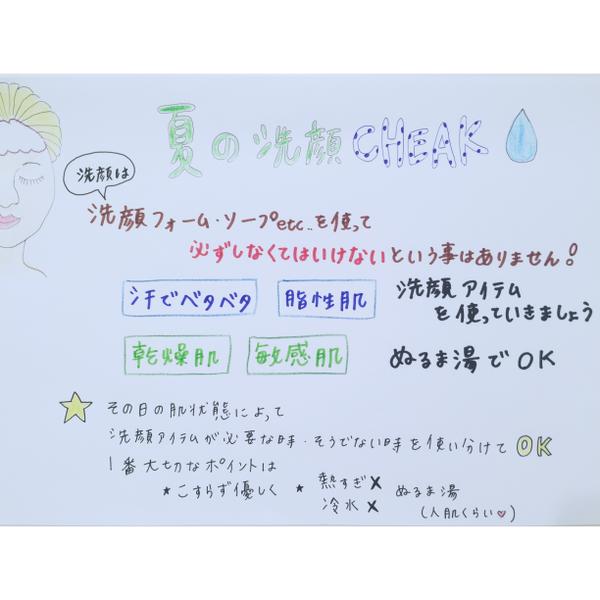 夏の洗顔CHEAK
洗顔は
洗顔フォーム・ソープetc..を使って
必ずしなくてはいけないという事はありません!
汗でベタベタ 脂性肌 洗顔アイテム
を使っていきましょう
乾燥肌 敏感肌 ぬるま湯でOK
その日の肌状態によって
洗顔アイテムが必要な時・そうでない時を使い分けてOK
1番大切なポイントは
★こすらず優しく ★熱すぎ× ぬるま湯
冷水× (人肌くらい♡)